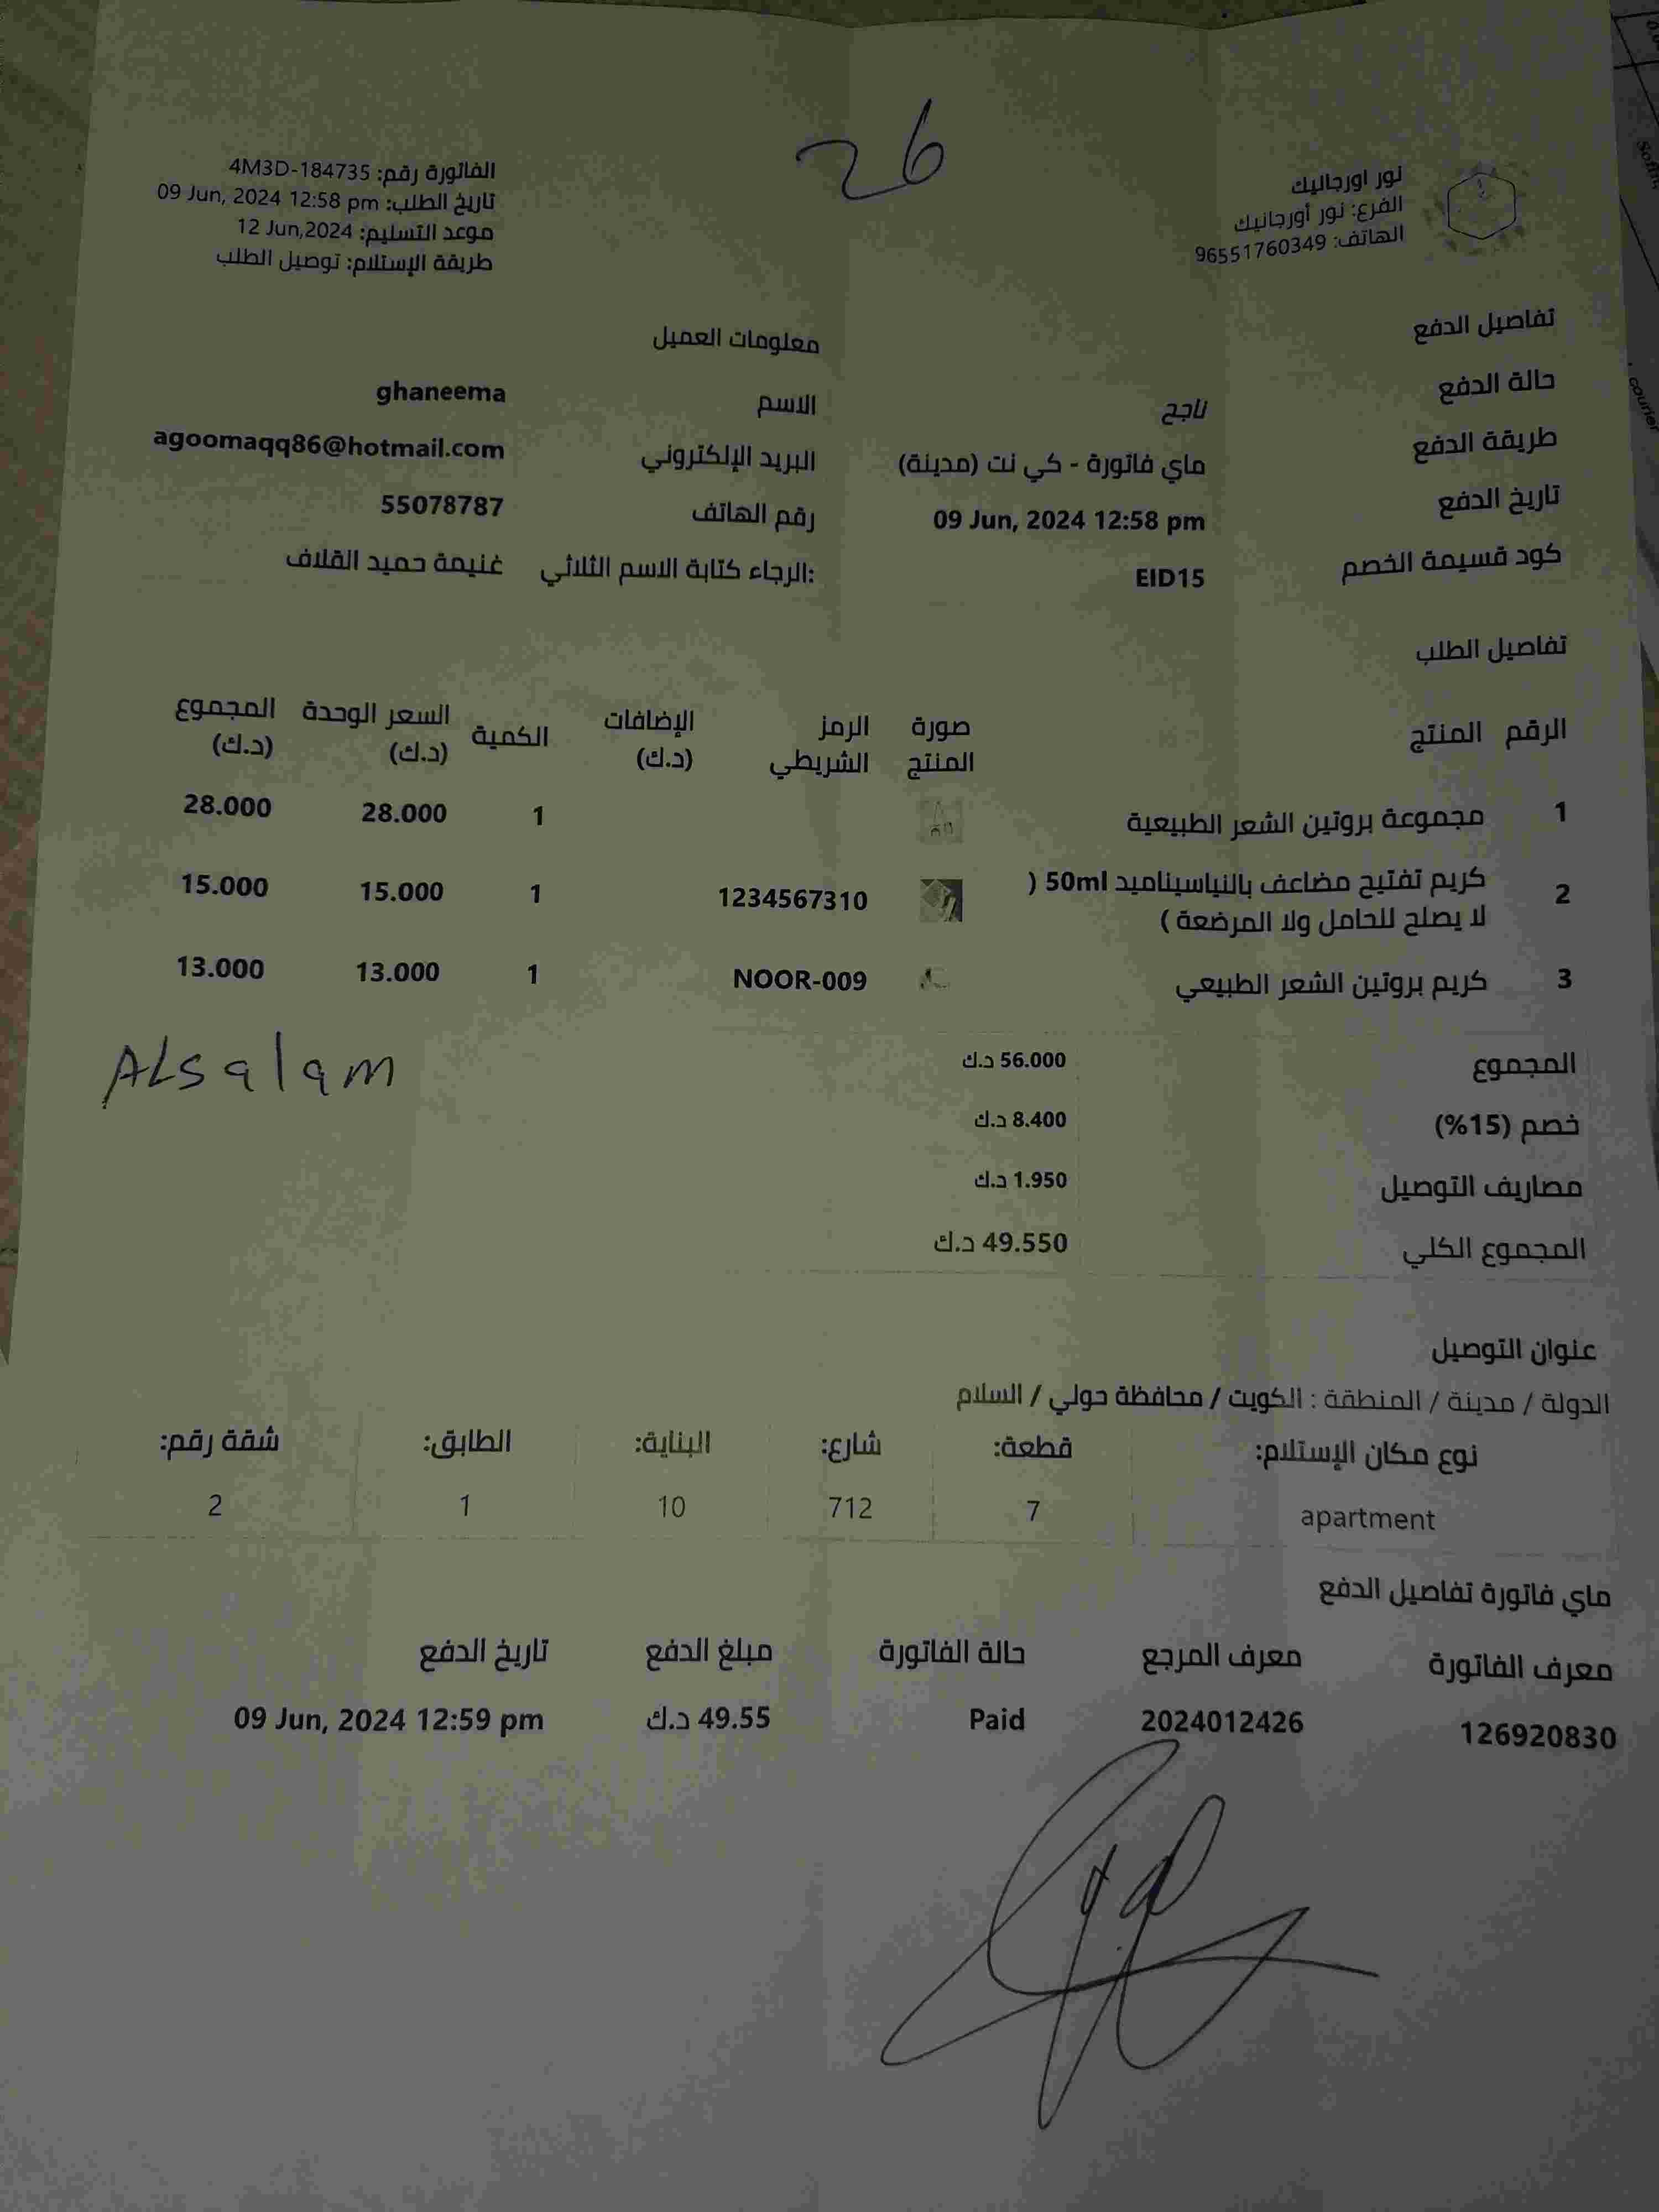 نور اورجانيك
الفرع: نور أورجانيك
الهاتف: 96551760349
الفاتورة رقم: 4M3D-184735
تاريخ الطلب: 09 Jun, 2024 12:58 pm
موعد التسليم: 12 Jun,2024
طريقة الإستلام: توصيل الطلب
26
تفاصيل الدفع
حالة الدفع ناجح
طريقة الدفع ماي فاتورة - كي نت (مدينة)
تاريخ الدفع 09 Jun, 2024 12:58 pm
كود قسيمة الخصم EID15
معلومات العميل
الاسم ghaneema
البريد الإلكتروني agoomaqq86@hotmail.com
رقم الهاتف 55078787
:الرجاء كتابة الاسم الثلاثي غنيمة حميد القلاف
تفاصيل الطلب
الرقم المنتج صورة المنتج الرمز الشريطي الإضافات (د.ك) الكمية السعر الوحدة (د.ك) المجموع (د.ك)
1 مجموعة بروتين الشعر الطبيعية 1 28.000 28.000
2 كريم تفتيح مضاعف بالنياسيناميد 50ml ( 1234567310 1 15.000 15.000
لا يصلح للحامل ولا المرضعة )
3 كريم بروتين الشعر الطبيعي NOOR-009 1 13.000 13.000
المجموع 56.000 د.ك
ALsalam
خصم (15%) 8.400 د.ك
مصاريف التوصيل 1.950 د.ك
المجموع الكلي 49.550 د.ك
عنوان التوصيل
الدولة / مدينة / المنطقة : الكويت / محافظة حولي / السلام
نوع مكان الإستلام: قطعة: شارع: البناية: الطابق: شقة رقم:
apartment 7 712 10 1 2
ماي فاتورة تفاصيل الدفع
معرف الفاتورة معرف المرجع حالة الفاتورة مبلغ الدفع تاريخ الدفع
126920830 2024012426 Paid 49.55 د.ك 09 Jun, 2024 12:59 pm